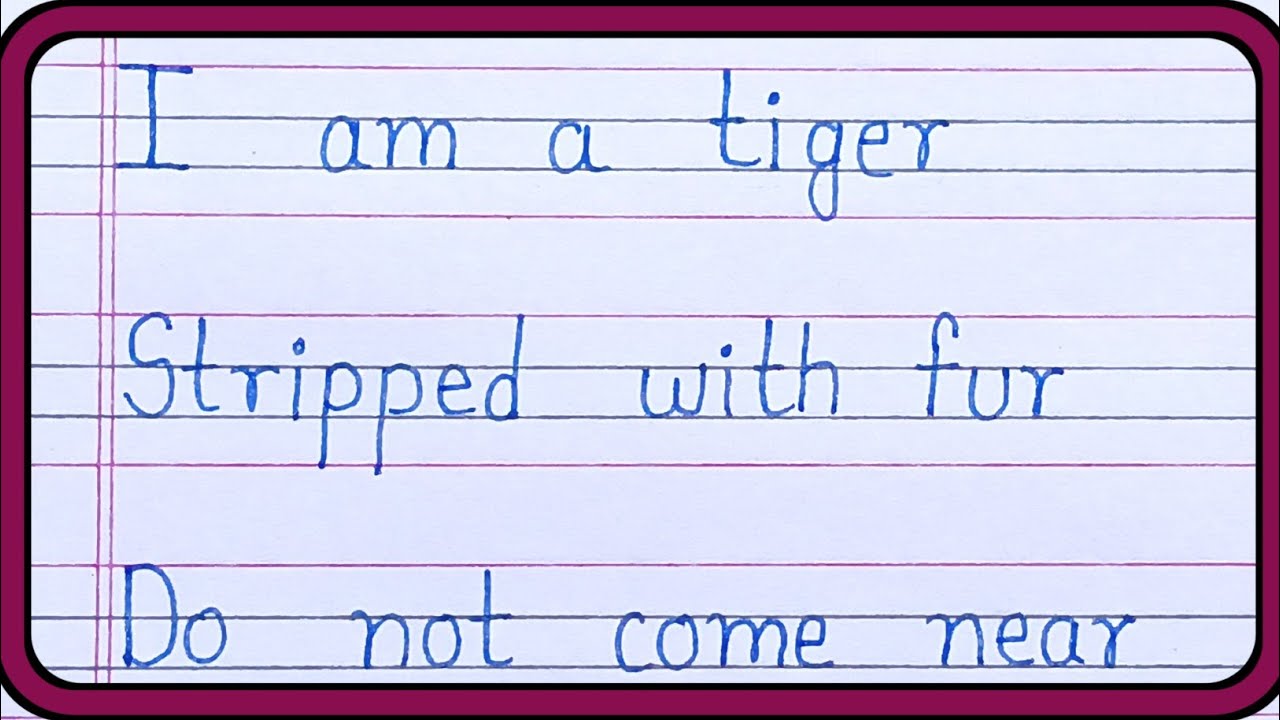 I am a tiger
Stripped with fur
Do not come near